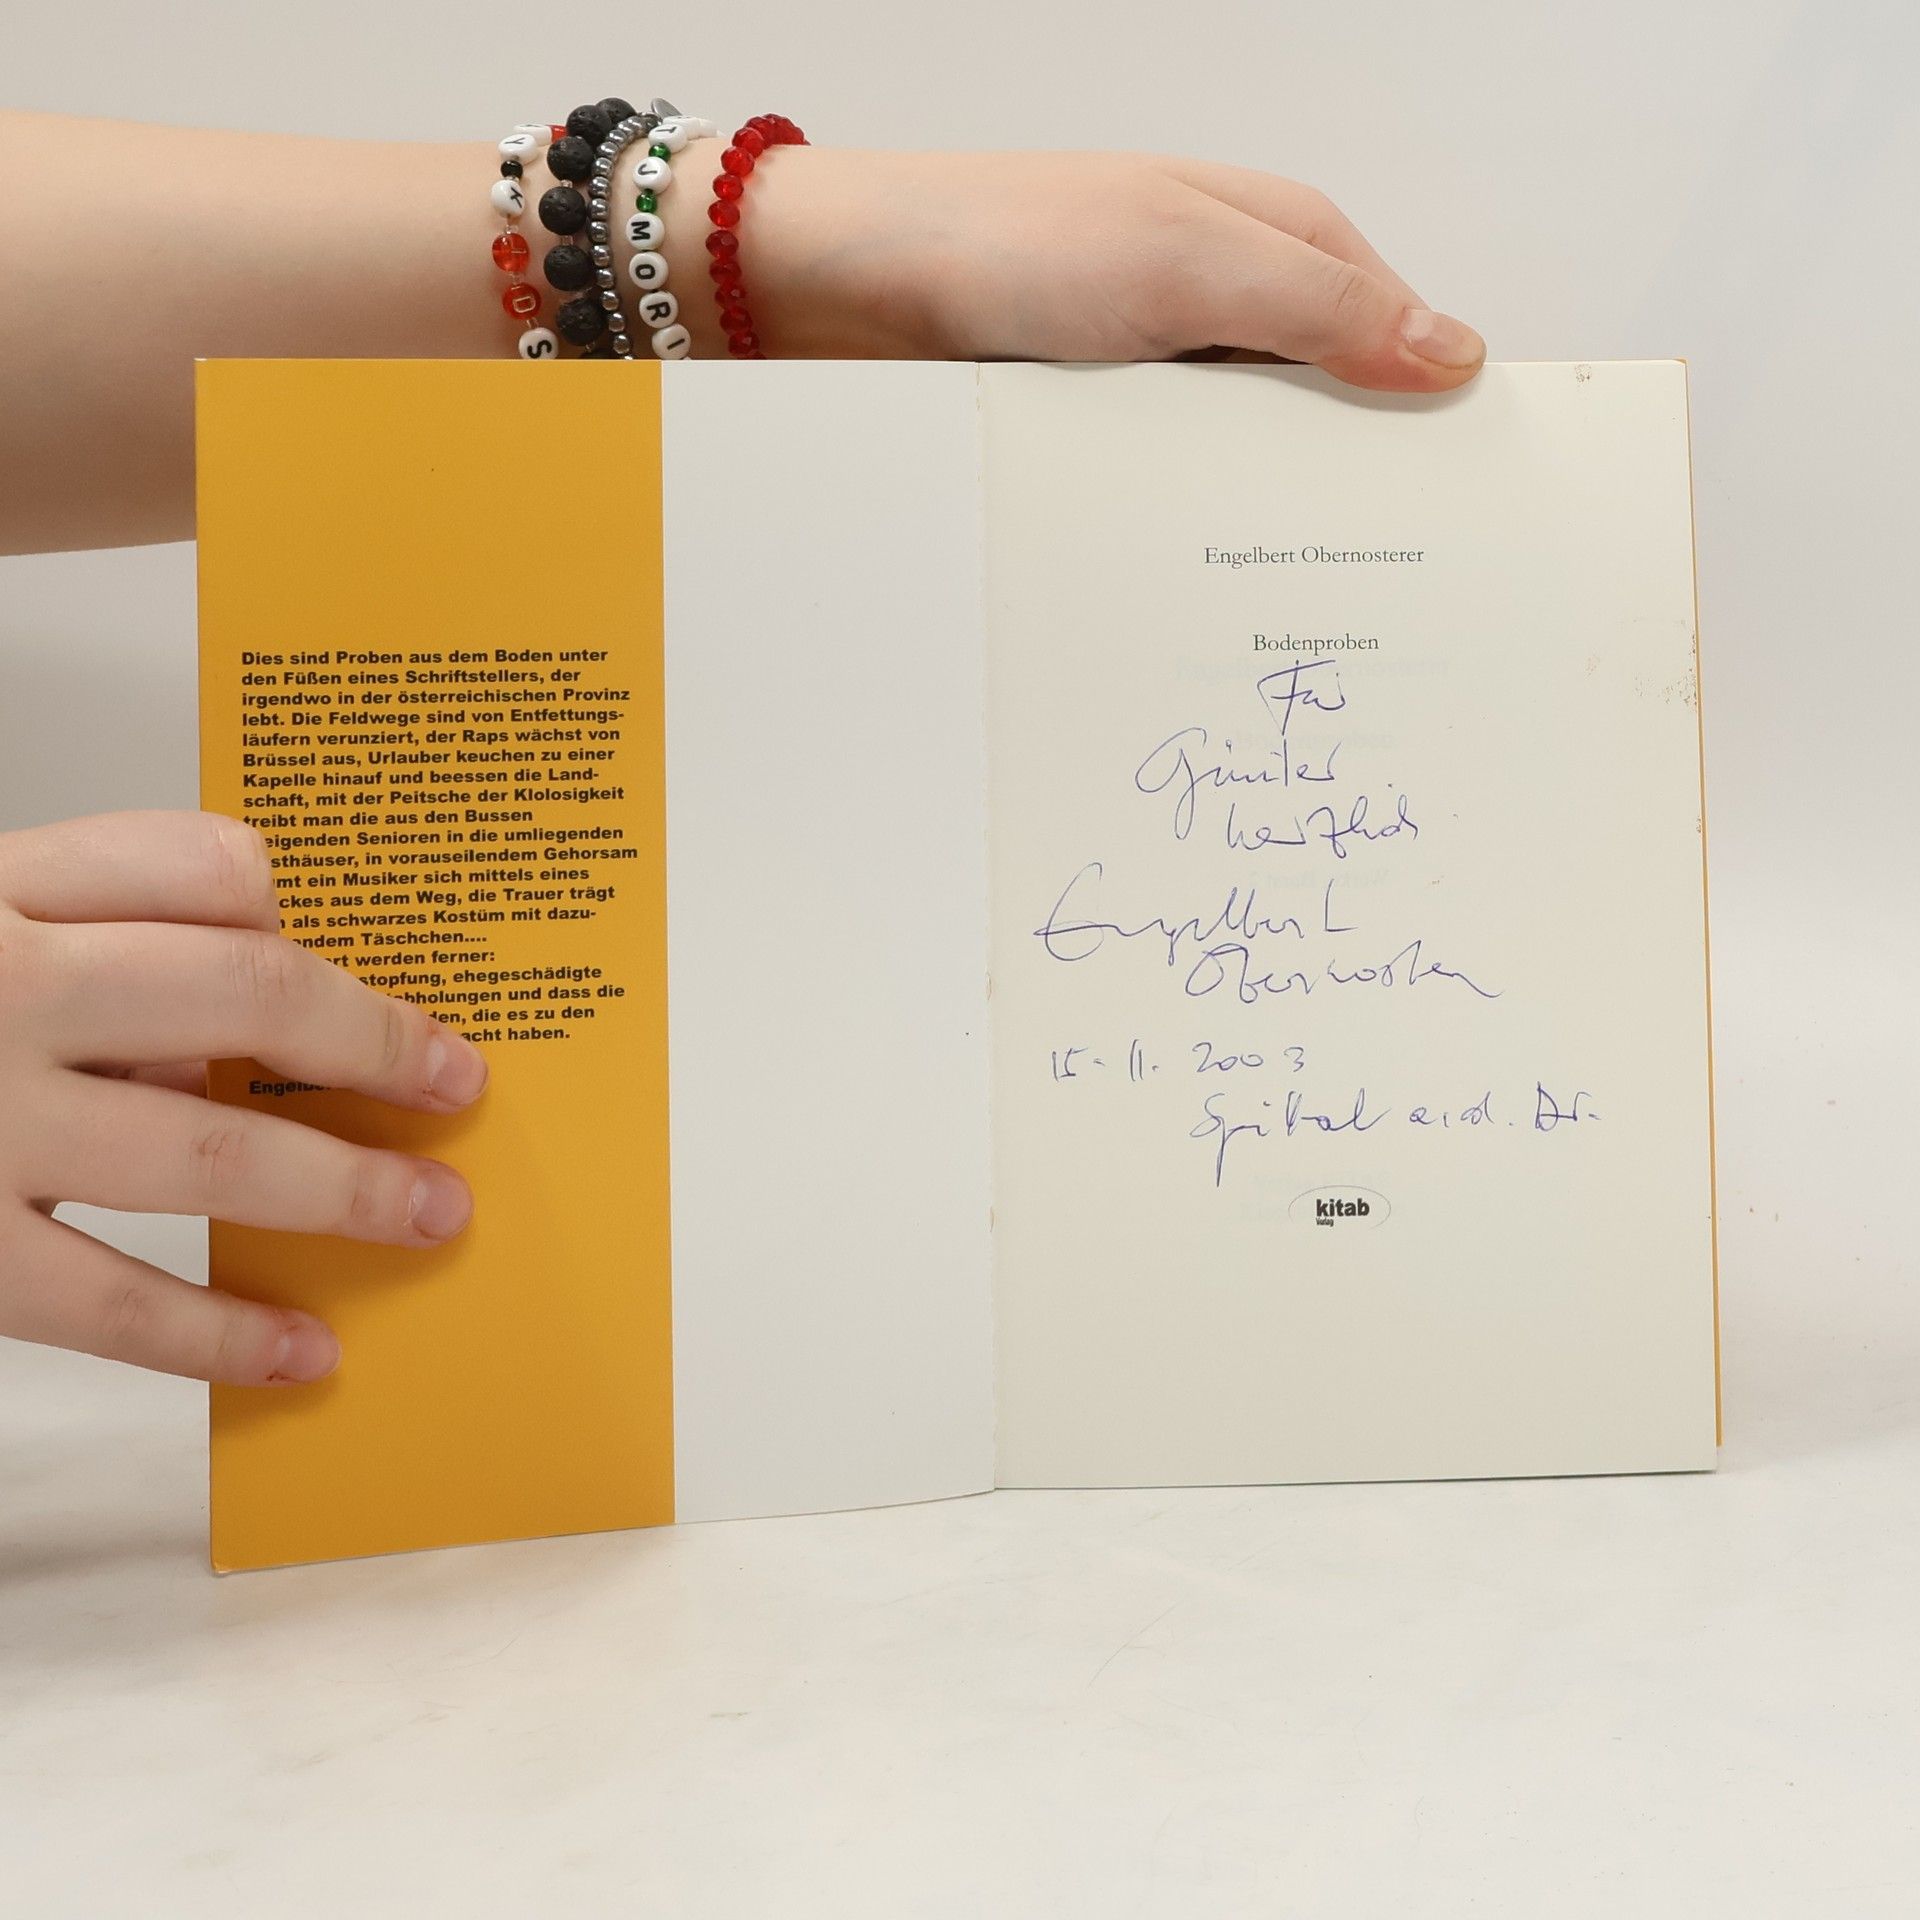 Y
K
D
S
T
J
MORI
Dies sind Proben aus dem Boden unter
den Füßen eines Schriftstellers, der
irgendwo in der österreichischen Provinz
lebt. Die Feldwege sind von Entfettungs-
läufern verunziert, der Raps wächst von
Brüssel aus, Urlauber keuchen zu einer
Kapelle hinauf und beessen die Land-
schaft, mit der Peitsche der Klolosigkeit
treibt man die aus den Bussen
eigenden Senioren in die umliegenden
sthäuser, in vorauseilendem Gehorsam
mt ein Musiker sich mittels eines
ckes aus dem Weg, die Trauer trägt
als schwarzes Kostüm mit dazu-
ndem Täschchen....
rt werden ferner:
stopfung, ehegeschädigte
bholungen und dass die
den, die es zu den
acht haben.
Engelbe
Engelbert Obernosterer
Bodenproben
Für
Günter
herzlich
Engelbert
Obernosterer
15. 11. 2003
Spittal a. d. Dr.
kitab
Verlag